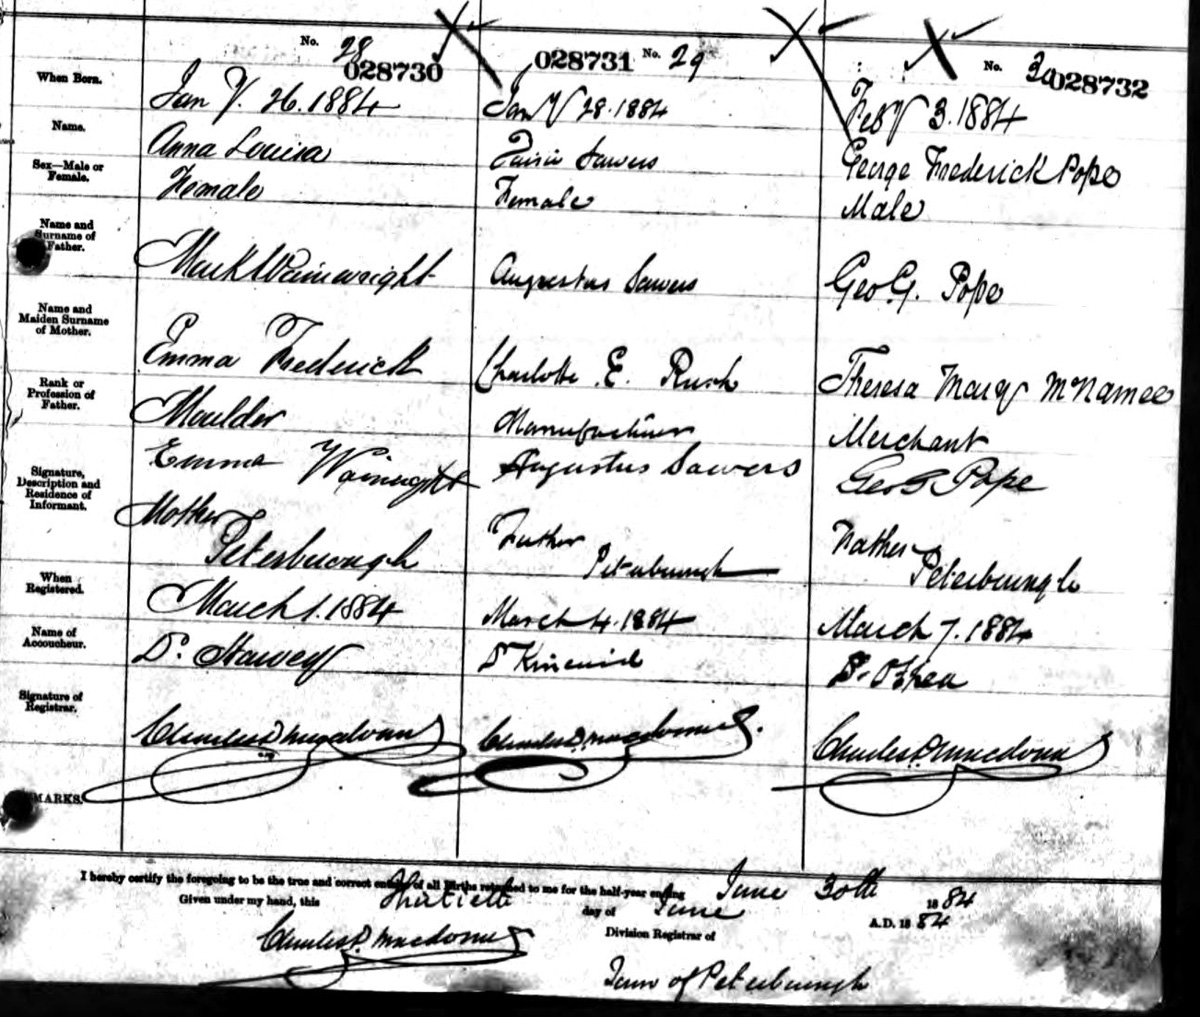 No. 28
028730
028731 No. 29
No. 30
028732
When Born.
Jan y. 26. 1884
Jan y 28. 1884
Feby 3. 1884
Name.
Anna Louisa
Sawers
George Frederick Pope
Sex—Male or
Female.
Female
Female
Male
Name and
Surname of
Father.
Mark Wainwright
Augustus Sawers
Geo G. Pope
Name and
Maiden Surname
of Mother.
Emma Frederick
Charlotte E. Rush
Theresa Mary McNamee
Rank or
Profession of
Father.
Moulder
Manufacturer
Merchant
Signature,
Description and
Residence of
Informant.
Emma Wainwright
Mother
Peterborough
Augustus Sawers
Father
Peterborough
Geo G Pope
Father
Peterborough
When
Registered.
March 1. 1884
March 4. 1884
March 7. 1884
Name of
Accoucheur.
Dr.
Dr Kincaid
Dr. O'Shea
Signature of
Registrar.
Charles
Charles
Charles
MARKS.
I hereby certify the foregoing to be the true and correct entries of all Births returned to me for the half-year ending June 30th 1884
Given under my hand, this Thirtieth day of June A.D. 1884
Charles
Division Registrar of
Town of Peterborough